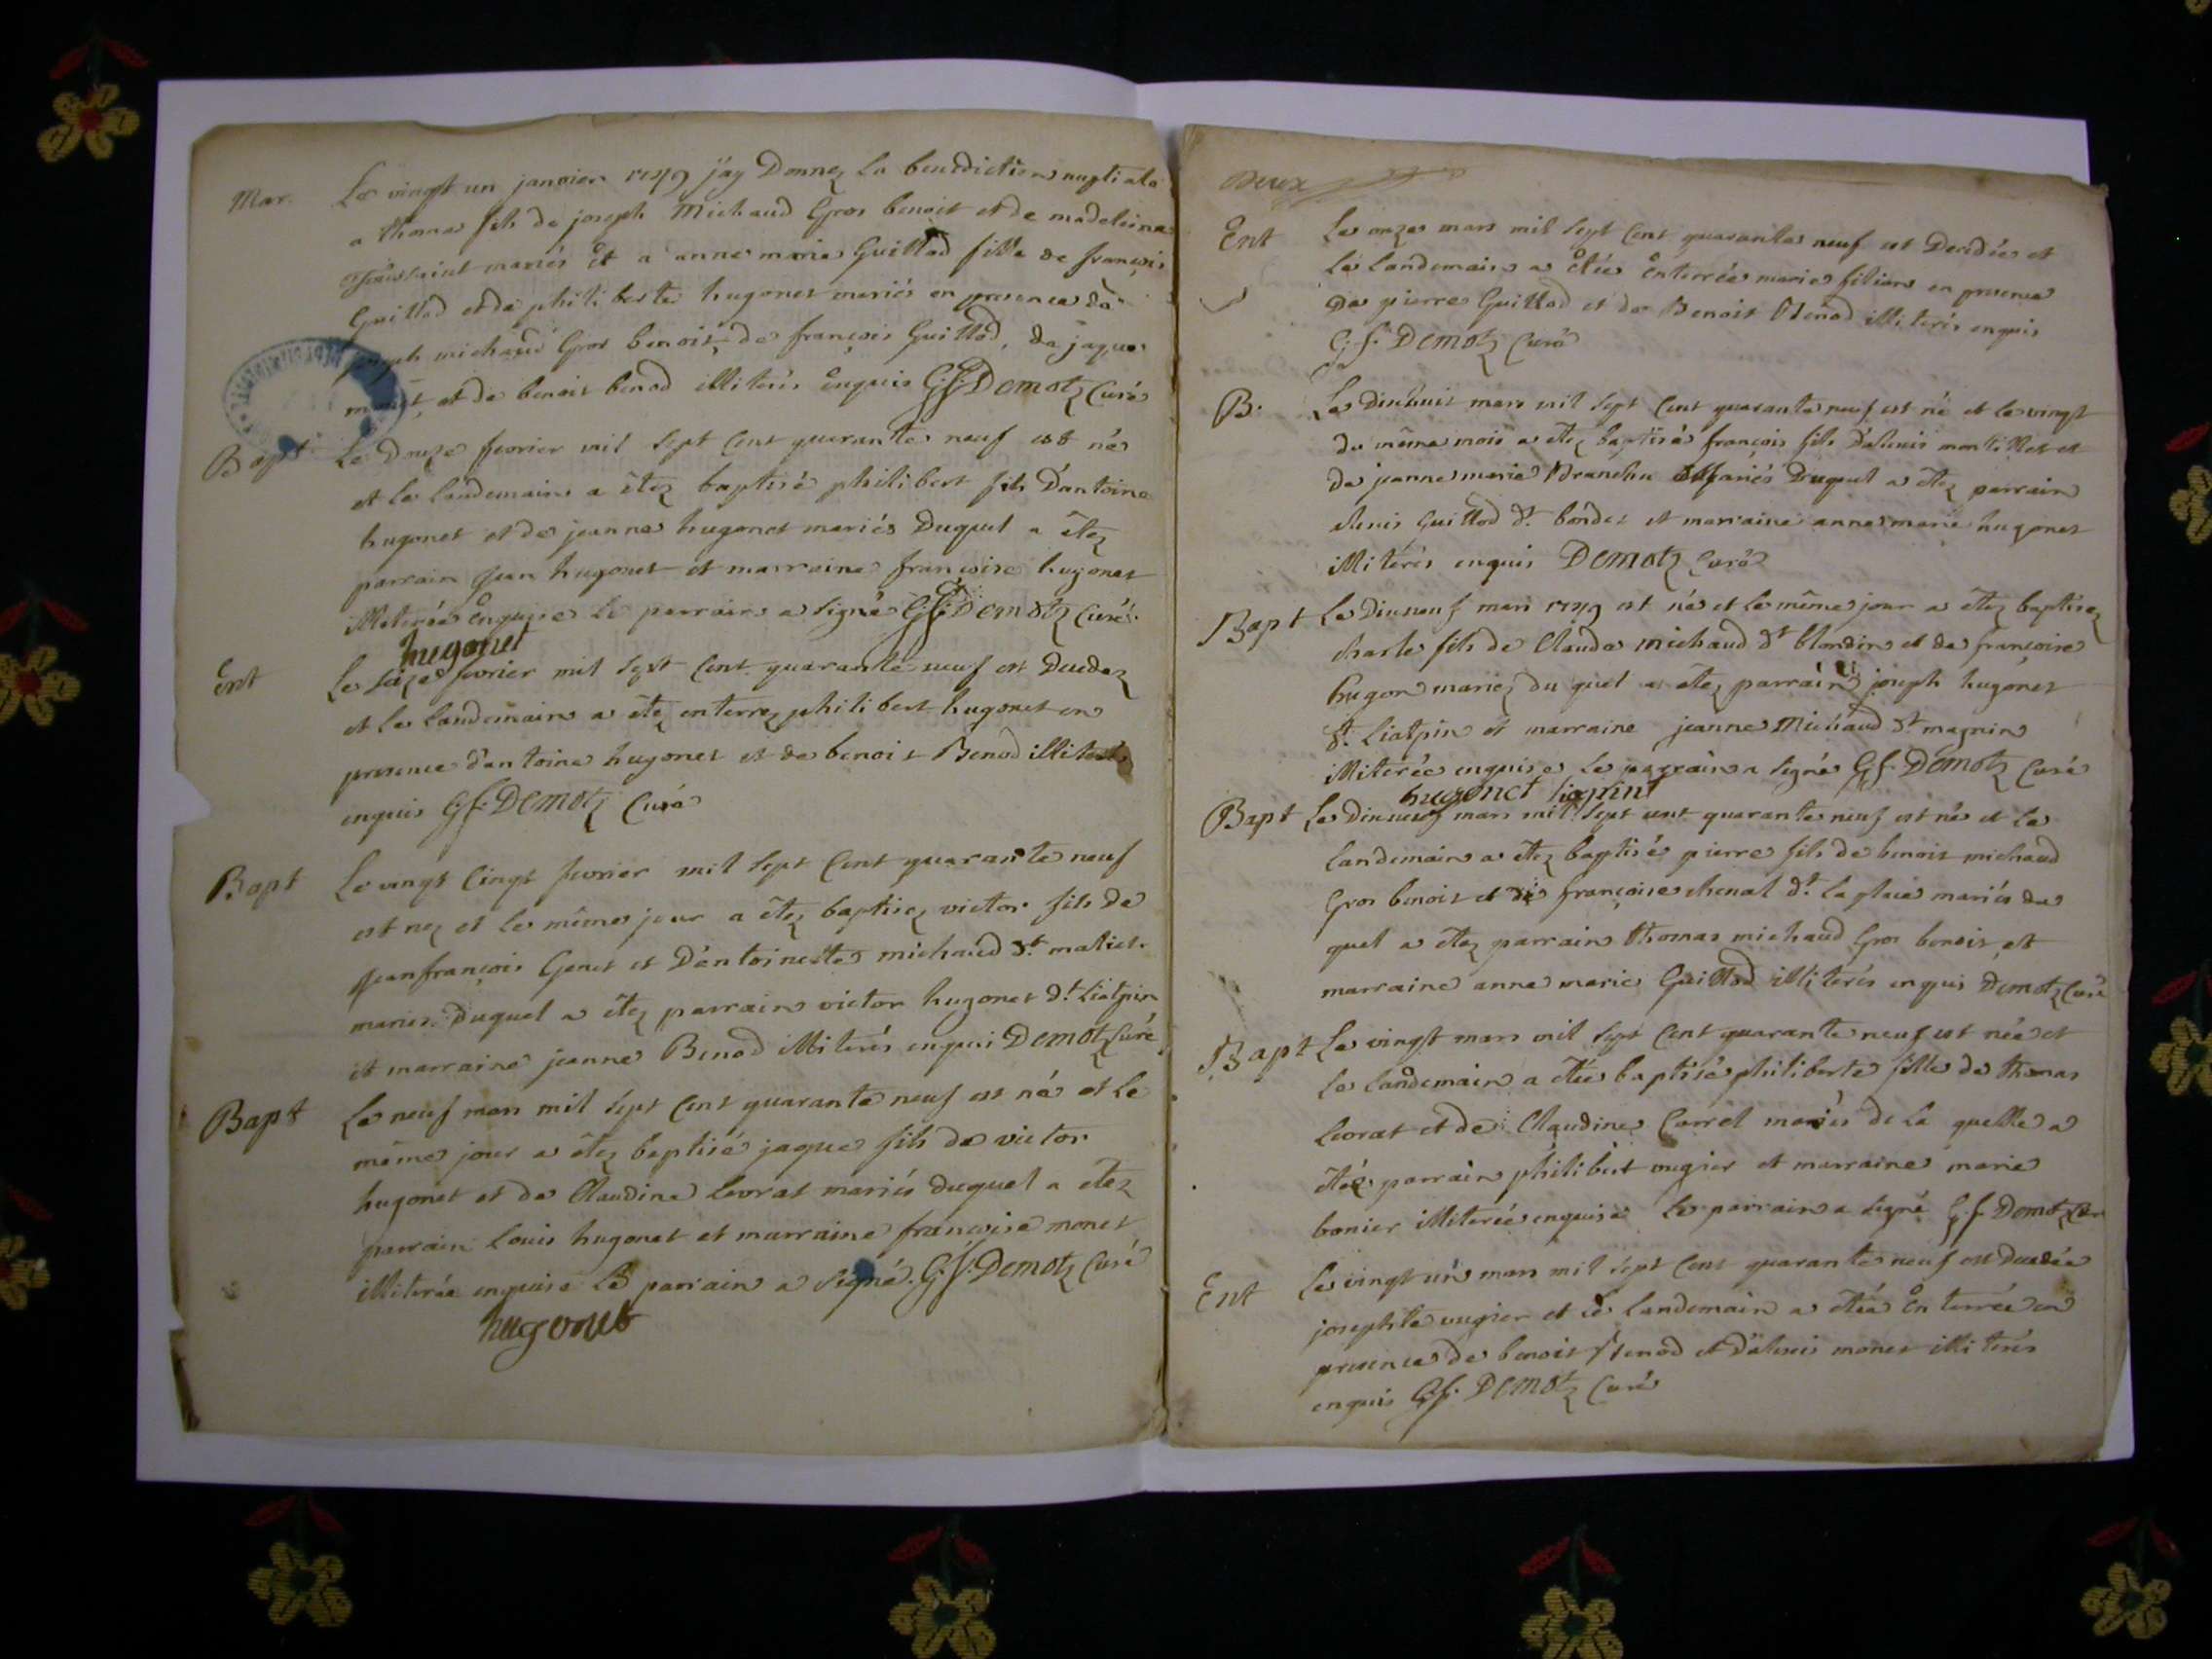 Mar. Le vingt un janvier 1749 j'ay Donnez la benediction nuptiale
a thomas fils de joseph Michaud Gros benoit et de madeleine
mariés Et a anne marie Guillod fille de francois
Guillod et de philiberte hugonet mariés en presence de
joseph michaud Gros benoit, de françois Guillod, de jaque
monet, et de benoit benod illiterés Enquis G:f: Demotz Curé
Bapt. Le Douze fevrier mil sept Cent quarante neuf est né
et le landemain a étez baptisé philibert fils D'antoine
hugonet et de jeanne hugonet mariés Duquel a étez
parrain jean hugonet et marraine françoise hugonet
illeterée Enquise Le parrain a signé G:f: Demotz Curé.
hugonet
Ent Le seize fevrier mil sept Cent quarante neuf est Decedez
et le landemain a étez enterrez philibert hugonet en
presence d'antoine hugonet et de benoit Benod illiterés
enquis G:f: Demotz Curé
Bapt Le vingt Cinqt fevrier mil sept Cent quarante neuf
est nez et le même jour a étez baptisez victor fils de
jeanfrançois Genet et D'antoinette michaud dt. maliet
mariés. Duquel a étez parrain victor hugonet dt. Liatpin
et marraine jeanne Benod illiterés enquis Demotz Curé
Bapt Le neuf mars mil sept Cent quarante neuf est né et le
même jour a étez baptisé jaque fils de victor
hugonet et de Claudine Levrat mariés duquel a étez
parrain Louis hugonet et marraine françoise monet
illiterée enquise Le parrain a signé. G:f: Demotz Curé
hugonet
Deux
Ent Le onze mars mil sept Cent quarante neuf est Decedée et
le landemain a étée Enterrée marie filion en presence
de pierre Guillod et de Benoit Benod illiterés enquis
G:f: Demotz Curé
B. Le Dixhuit mars mil sept Cent quarante neuf est né et le vingt
du même mois a étez baptisé françois fils d'alexis montillet et
de jeanne marie Branchu mariés Duquel a étez parrain
alexis Guillod dt. bordet et marraine anne marie hugonet
illiterés enquis Demotz Curé
Bapt Le Dixneuf mars 1749 est né et le même jour a étez baptisez
charle fils de Claude michaud dt blondin et de françoise
hugon mariez du quel a étez parrain joseph hugonet
dt. Liatpin et marraine jeanne Michaud dt. magnin
illiterée enquise Le parrain a signé G:f: Demotz Curé
hugonet liapint
Bapt Le Dixneuf mars mil sept cent quarante neuf est né et le
landemain a étez baptisé pierre fils de benoit michaud
Gros benoit et de françoise chenal dt. la place mariés du
quel a étez parrain thomas michaud Gros benoit, et
marraine anne marie Guillod illiterés enquis Demotz Curé
Bapt Le vingt mars mil sept Cent quarante neuf est née et
le landemain a étée baptisé philiberte fille de thomas
Levrat et de Claudine Carrel mariés de la quelle a
étéz parrain philibert vugier et marraine marie
bonier illiterée enquise Le parrain a signé G:f: Demotz Cur
Ent Le vingt un mars mil sept Cent quarante neuf est decedée
josephte vugier et le landemain a étéé Enterrée en
presence de benoit Benod et D'alexis monet illiterés
enquis G:f: Demotz Curé